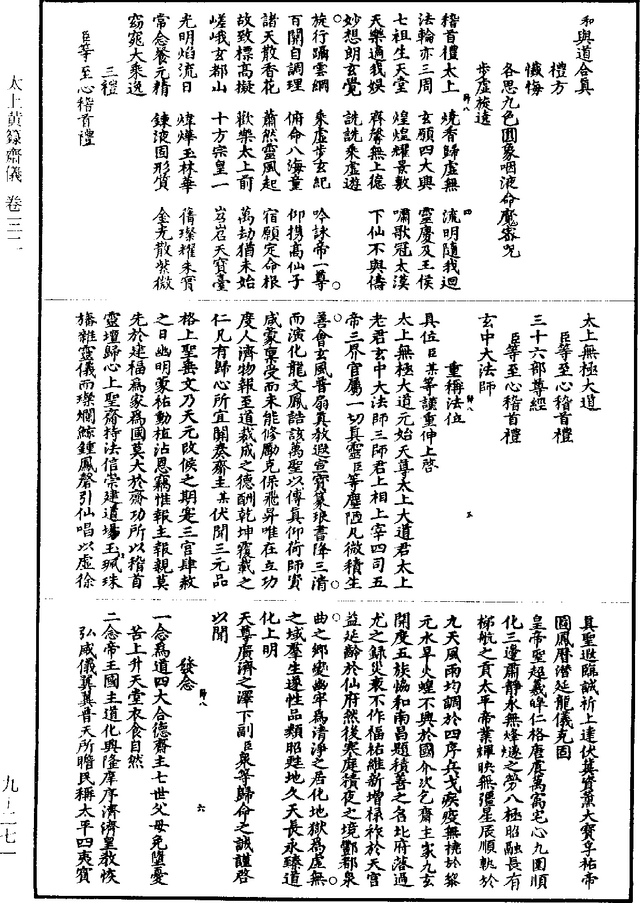 和與道合真
禮方
懺悔
各思九色圓象咽液命魔密咒
步虛旋遶
稽首禮太上 燒香歸虛無 流明隨我迴
法輪亦三周 玄願四大興 靈慶及王侯
七祖生天堂 煌煌耀景敷 嘯歌冠太漠
天樂適我娛 齊馨無上德 下仙不與儔
妙想朗玄覺 詵詵乘虛遊
旋行躡雲綱 乘虛步玄紀 吟詠帝一尊
百關自調理 俯命八海童 仰携高仙子
諸天散香花 蕭然靈風起 宿願定命根
故致標高擬 歡樂太上前 萬劫猶未始
嵯峨玄都山 十方宗皇一 岧岧天寶臺
光明焰流日 煒燁玉林華 蒨璨耀朱實
常念餐元精 鍊液固形質 金光散紫微
窈窕大乘逸
三禮
臣等至心稽首禮
太上無極大道
臣等至心稽首禮
三十六部尊經
臣等至心稽首禮
玄中大法師
重稱法位
具位臣某等謹重伸上啓
太上無極大道元始天尊太上大道君太上
老君玄中大法師三師君上相上宰四司五
帝三界官屬一切真靈臣等塵陋凡微積生
善會玄風普扇真教遐宣寶篆琅書降三清
而演化龍文鳳誥該萬聖以傳真仰荷師資
咸蒙稟受而未能修勵克保飛昇唯在立功
度人濟物報至道裁成之德酬乾坤覆載之
仁凡有歸心所宜關奏齋主某伏聞三元品
格上聖垂文乃天元改候之期寔三官肆赦
之日幽明蒙祐動植沾恩竊惟報主報親莫
先於建福為家為國莫大於齋功所以稽首
靈壇歸心上聖齋持法信崇建道場玉珮珠
旛雜靈儀而璨爛鯨鍾鳳磬引仙唱以虛徐
真聖遐臨誠祈上達伏冀資薰大寶孚祐帝
圖鳳曆潛延龍儀克固
皇帝聖超羲皞仁格唐虞萬寓宅心九圍順
化三邊肅靜永無烽燧之勞八極昭融長有
梯航之貢太平帝業輝映無疆星辰順軌於
九天風雨均調於四序兵戈疾疫無撓於黎
元水旱火蝗不興於國界次乞齋主家九玄
開度五族協和南昌題積善之名北府落過
尤之錄災衰不作福祐維新增祿祚於天官
益延齡於仙府然後寒庭積夜之境酆都泉
曲之鄉變幽牢為清淨之居化地獄為虛無
之域羣生遂性品類昭甦地久天長永臻道
化上明
天尊廣濟之澤下副臣衆等歸命之誠謹啓
以聞
發念
一念為道四大合德齋主七世父母免墮憂
苦上升天堂衣食自然
二念帝王國主道化興隆庠序濟濟皇教恢
弘威儀翼翼普天所瞻民稱太平四夷賓
太上黃籙齋儀 卷三二
九－二七一